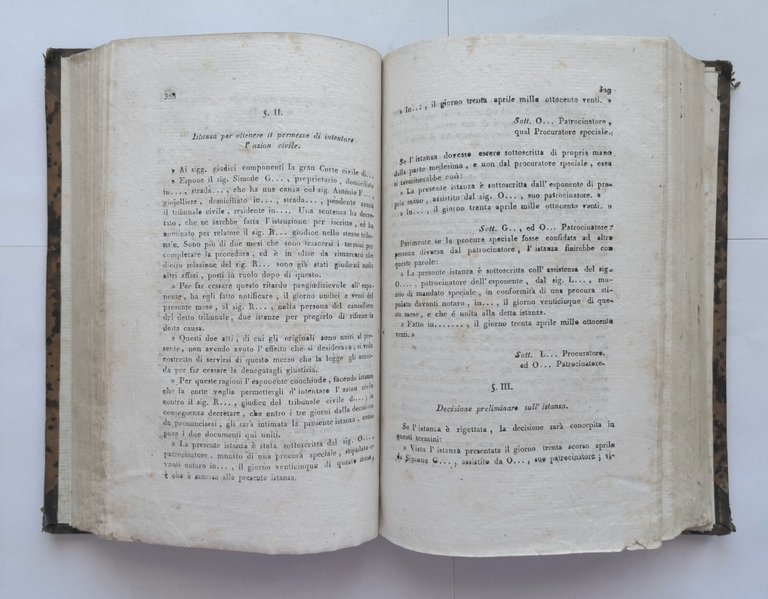 358
§. II.
Istanza per ottenere il permesso di intentare
l'azion civile.
» Ai sigg. giudici componenti la gran Corte civile di...
» Espone il sig. Simone G..., proprietario, domiciliato
in...., strada..., che ha una causa col sig. Antonio F...,
gioielliere, domiciliato in..., strada..., pendente avanti
il tribunale civile, residente in.... Una sentenza ha decre-
tato, che ne sarebbe fatta l'istruzione per iscritto, ed ha
nominato per relatore il sig. R... giudice nello stesso tribu-
nale. Sono più di due mesi che sono trascorsi i termini per
completare la procedura, ed è in oltre da rimarcarsi che
dietro relazione del sig. R... sono già stati giudicati molti
altri affari, posti in ruolo dopo di questo.
» Per far cessare questo ritardo pregiudizievole all'espo-
nente, ha egli fatto notificare, il giorno undici e venti del
presente mese, al sig. R... nella persona del cancelliere
del detto tribunale, due istanze per pregarlo di riferire la
detta causa.
» Questi due atti, di cui gli originali sono uniti al pre-
sente, non avendo avuto l'effetto che si desiderava, si vede
costretto di servirsi di questo mezzo che la legge gli accor-
da per far cessare la denegatagli giustizia.
» Per queste ragioni l'esponente conchiude, facendo istanza
che la corte voglia permettergli d'intentare l'azion civile
contro il sig. R..., giudice del tribunale civile di..., in
conseguenza decretare, che entro i tre giorni dalla decisione
da pronunciarsi, gli sarà intimata la presente istanza, come
pure i due documenti qui uniti.
» La presente istanza è stata sottoscritta dal sig. O...,
patrocinatore, munito di una procura speciale, stipulata da-
vanti notaro in..., il giorno venticinque di questo mese,
e che è annessa alla presente istanza.
» In..., il giorno trenta aprile mille ottocento venti. »
Sott. O... Patrocinatore,
qual Procuratore speciale.
Se l'istanza dovesse essere sottoscritta di propria mano
dalla parte medesima, e non dal procuratore speciale, essa
si terminerebbe così:
» La presente istanza è sottoscritta dall'esponente di pro-
pria mano, assistito dal sig. O..., suo patrocinatore. »
» In..., il giorno trenta aprile mille ottocento venti.
Sott. G.., ed O... Patrocinatore:
Parimente se la procura speciale fosse confidata ad altra
persona diversa dal patrocinatore, l'istanza finirebbe con
queste parole:
» La presente istanza è sottoscritta coll'assistenza del sig.
O..., patrocinatore dell'esponente, dal sig. L..., mu-
nito di mandato speciale, in conformità di una procura sti-
pulata davanti notaro, in..., il giorno venticinque di que-
sto mese, e che è unita alla detta istanza.
» Fatto in......., il giorno trenta aprile mille ottocento
venti. »
Sott. L... Procuratore.
ed O... Patrocinatore.
§. III.
Decisione preliminare sull'istanza.
Se l'istanza è rigettata, la decisione sarà concepita in
questi termini:
» Vista l'istanza presentata il giorno trenta scorso aprile
da Simone G..., assistito da O..., suo patrocinatore; vi-